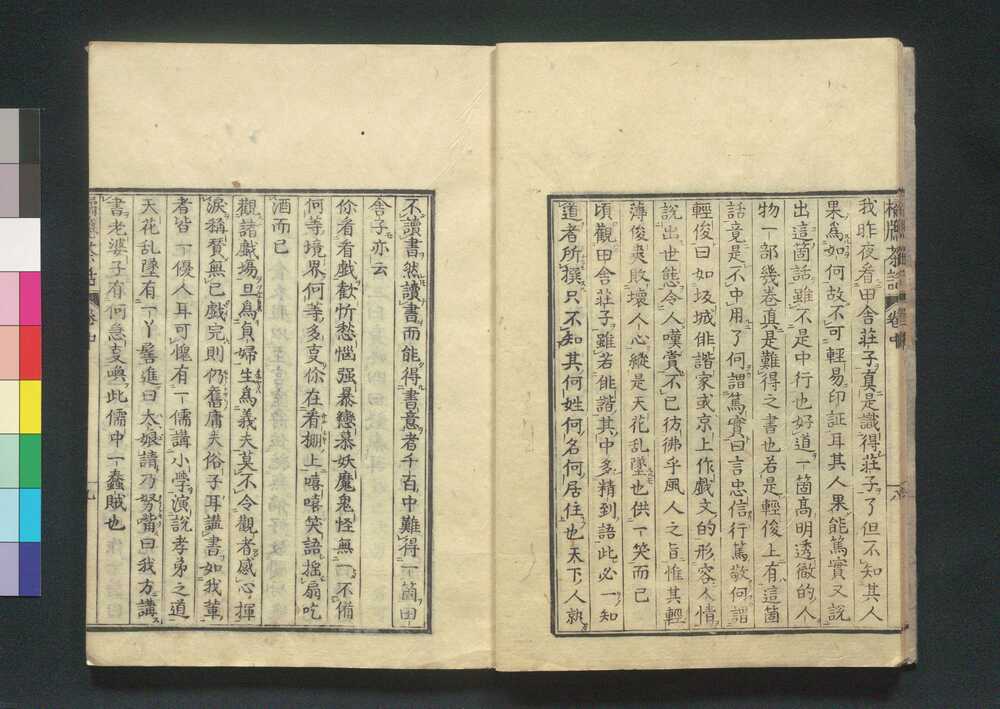 我昨夜看田舎荘子真是識得荘子了但不知其人
果為如何故不可輕易印証耳其人果能篤實又説
出這箇話雖不是中行也好道一箇髙明透徹的人
物一部幾卷真是難得之書也若是輕俊上有這箇
話竟是不中用了何謂篤實曰言忠信行篤敬何謂
輕俊曰如圾城俳諧家或京上作戯文的形容人情
説出世態令人嘆賞不已彷彿乎風人之旨惟其輕
薄俊爽敗壞人心縱是天花乱墜也供一笑而已
頃觀田舎荘子雖若俳諧其中多精到語此必一知
道者所撰只不知其何姓何名何居住也天下人孰
不讀書然讀書而能得書意者千百中難得一箇田
舎子亦云
你看看戯歡忻愁惱强暴戀慕妖魔鬼怪無一不備
何等境界何等多夏你在看棚上嘻嘻笑語揺扇吃
酒而已
觀諸戯場旦為貞婦生為義夫莫不令觀者感心揮
淚稱賛無已戯完則仍舊庸夫俗子耳講書如我輩
者皆一優人耳可愧有一儒講小學演説孝弟之道
天花乱墜有一丫鬟進曰太娘請乃努嘴曰我方講
書老婆子有何急夏喚此儒中一蠹賊也